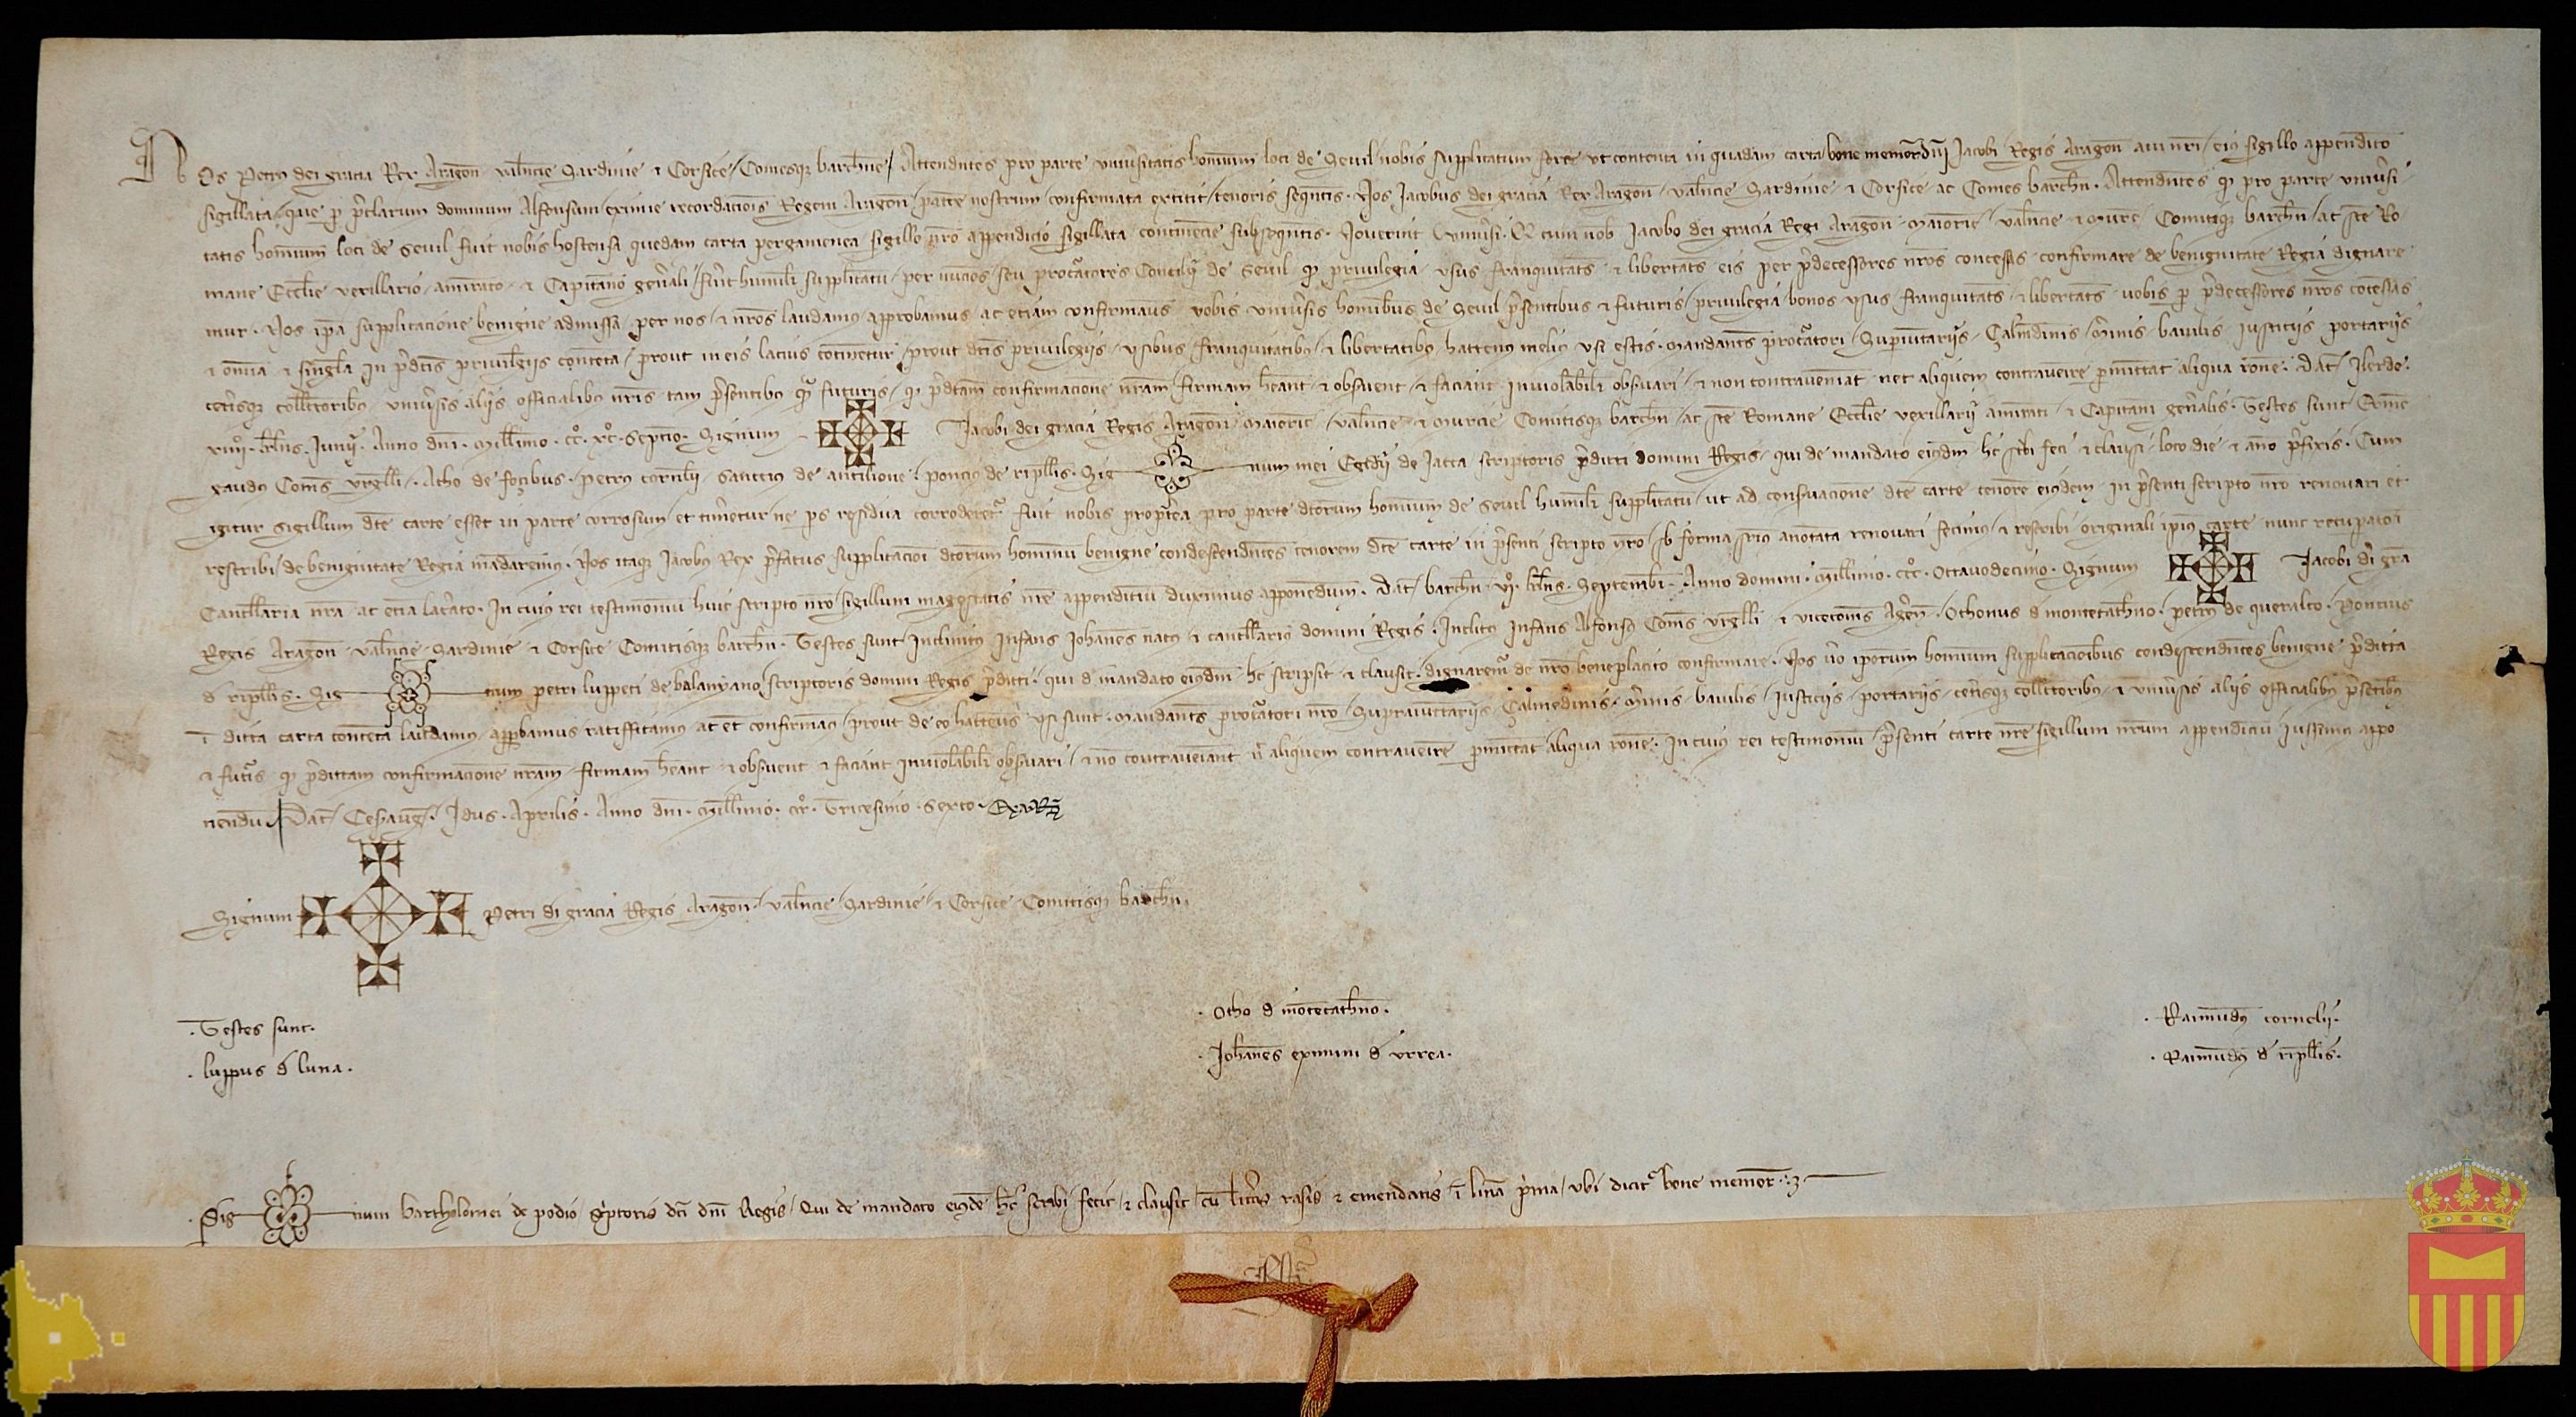 Nos Petrus dei gracia Rex Aragon̄ Valn̄cie Sardinie ⁊ Corsice / Comesqꝫ barchn̄e / Attendentes pro parte univ̄sitatis hominum loci de Seuil nobis supplicatum fore ut contenta in quadam carta bone memor̄ dn̄i Jacobi Regis Aragon̄ aui nr̄i / eiꝰ sigillo appendicio
sigillata / que ꝑ p̄clarum dominum Alfonsum eximie recordacionis Regem Aragon̄ / patrē nostrum confirmata extitit / tenoris seqn̄tis. Nos Jacobus dei gracia Rex Aragon̄ Valn̄cie Sardinie ⁊ Corsice ac Comes barchn̄. Attendentes qꝫ pro parte univ̄si
tatis hominum loci de Seuil fuit nobis hostensa quedam carta pergamenea sigillo nr̄o appendicio sigillata continencie subseqn̄tis. Noverint univ̄si. Qꝫ cum nob̄ Jacobo dei gracia Regi Aragon̄ Maioric̄ / Valn̄cie ⁊ Murc̄ Comitiqꝫ barchn̄ / ac sc̄e Ro
mane Eccl̄ie vexillario amirato ⁊ Capitaneo gen̄ali / fuit humilit̄ supplicatū / per nuncios / seu procuratores Concilij de Seuil qꝫ privilegia usus franquitates ⁊ libertates eis per p̄decessores nr̄os concessas confirmare de benignitate Regia dignare
mur. Nos ip̄a supplicacione benigne admissa per nos ⁊ nr̄os laudamꝰ approbamus ac etiam confirmamꝰ vobis univ̄sis hominibus de Seuil p̄sentibus ⁊ futuris / privilegia bonos usus franquitates ⁊ libertates vobis ꝑ p̄decessores nr̄os concessas
⁊ om̄ia ⁊ singl̄a in p̄dc̄is privilegiis contenta / prout in eis lacius continetur / prout dc̄is privilegijs / usibus franquitatibꝰ ⁊ libertatibꝰ hactenus meliꝰ usi estis. Mandantes procuratori / Supraiuntariis / Çalmedinis / m̄inis baiulis iusticiis portariis
cet̄isqꝫ coll̄toribꝰ univ̄sis aliis officialibꝰ nr̄is tam p̄sentibꝰ qꝫ futuris / qꝫ p̄dc̄am confirmacionē nr̄am / firmam h̄eant ⁊ observent ⁊ faciant inviolabilit̄ observari / ⁊ non contraveniant nec aliquem contravenire permittāt aliqua rōne. Dat̄ Ilerde.
xiiij. kl̄ns. Junij. Anno dn̄i. Mill̄imo. ccͦ. xcͦ. septīo. Signum Jacobi dei gracia Regis Aragon̄ Maioric̄ / Valn̄cie ⁊ Murcie Comitisqꝫ barchn̄ / ac sc̄e Romane Eccl̄ie vexillarij amirati / ⁊ Capitanī gen̄alis. Testes sunt Erm̄e
gaudus Com̄s Urgelli. Atho de focibus. Petrꝰ cornelij. Sancciꝰ de antilione. Ponciꝰ de ripll̄is. Sig num mei Egidij de Jacca scriptoris p̄dicti domini Regis / qui de mandato eiꝰdem hc̄ sc̄bi feci ⁊ clausi / loco die ⁊ anō p̄fixis. Cum
igitur sigillum dc̄e carte esset in parte corrosum / et timeretur ne ps̄ residua corroderet̄ fuit nobis propterea pro parte dc̄orum hominum de Seuil humilit̄ supplicatū / ut ad conservacionē dc̄e carte tenorē eiꝰdem in p̄senti scripto nr̄o renovari et
rescribi / de benignitate Regia mandaremꝰ. Nos itaqꝫ Jacobꝰ Rex p̄fatus supplicacioni dc̄orum hominū benigne condescendentes tenorem dc̄e carte in p̄senti scripto nr̄o / sb̄ forma sup̄ius anotata renovari fecimus / ⁊ rescribi originali ip̄ius carte nunc recupato ī
Cancellaria nr̄a ac etiā lac̄ato. In cuiꝰ rei testimoniū huic scripto nr̄o sigillum magestatis nr̄e appendiciū duximus apponendum. Dat̄ barchn̄. vjͦ. kl̄ns. Septembr̄. Anno domini. Mill̄imo. cccͦ. octavodecimo. Signum Jacobi dī gr̄a
Regis Aragon̄ Valn̄cie Sardinie ⁊ Corsice Comitisqꝫ barchn̄. Testes sunt Inclitꝰ Infans Johanēs natꝰ ⁊ cancellariꝰ domini Regis. Inclitꝰ Infans Alfonsꝰ Com̄s Urgelli ⁊ vicecom̄s Agēn̄. Othonus d̄ montecathno. Petrꝰ de queralto. Poncius
d̄ ripll̄is. Sig num petri luppeti de balanyano scriptoris domini Regis p̄dicti. qui d̄ mandato eiꝰdem hc̄ scripsit ⁊ clausit. dignaremꝰ de nr̄o beneplacito confirmare. Nos v̄o ip̄orum hominum supplicacionibus condescendentes benigne p̄dicta
ī dicta carta contenta laudamꝰ apꝑbamus ratifficamꝰ ac et̄ confirmamꝰ / prout de eo hactenus usi sunt. Mandantes procuratori nr̄o / Supraiunctariis / Çalmedinis. m̄inis baiulis / iusticiis / portariis / cet̄isqꝫ coll̄toribꝰ ⁊ univ̄sis aliis officialibꝰ p̄sentibꝰ
⁊ futuris qꝫ p̄dictam confirmacionē nr̄am firmam h̄eant ⁊ observent ⁊ faciant inviolabilit̄ observari / ⁊ nō contraveniant n̄ aliquem contravenire permittāt aliqua rōne. In cuiꝰ rei testimoniū / p̄senti carte nr̄e sigillum nr̄um appendiciū iussimꝰ appo
nendū. Dat̄ Cesarauḡ. Idus. Aprilis. Anno dn̄i. Mill̄imo. cccͦ. Tricesimo. sexto.
Signum Petri dī gracia Regis Aragon̄ / Valn̄cie / Sardinie / ⁊ Corsice Comitisqꝫ barchn̄.
. Testes sunt.
. luppus d̄ luna.
. Otho d̄ mōtecathno.
. Johanēs eximini d̄ Urrea.
. Raimūdꝰ cornelij.
. Raimūdꝰ d̄ ripll̄is.
. Sig num bartholomei de podio sc̄ptoris dc̄i dn̄i Regis / Qui de mandato eiꝰdē hc̄ scribi fecit ⁊ clausit / cū litt̄is rasis ⁊ emendatis ī linea p̄ma / ubi dicitꝰ bone memor̄.